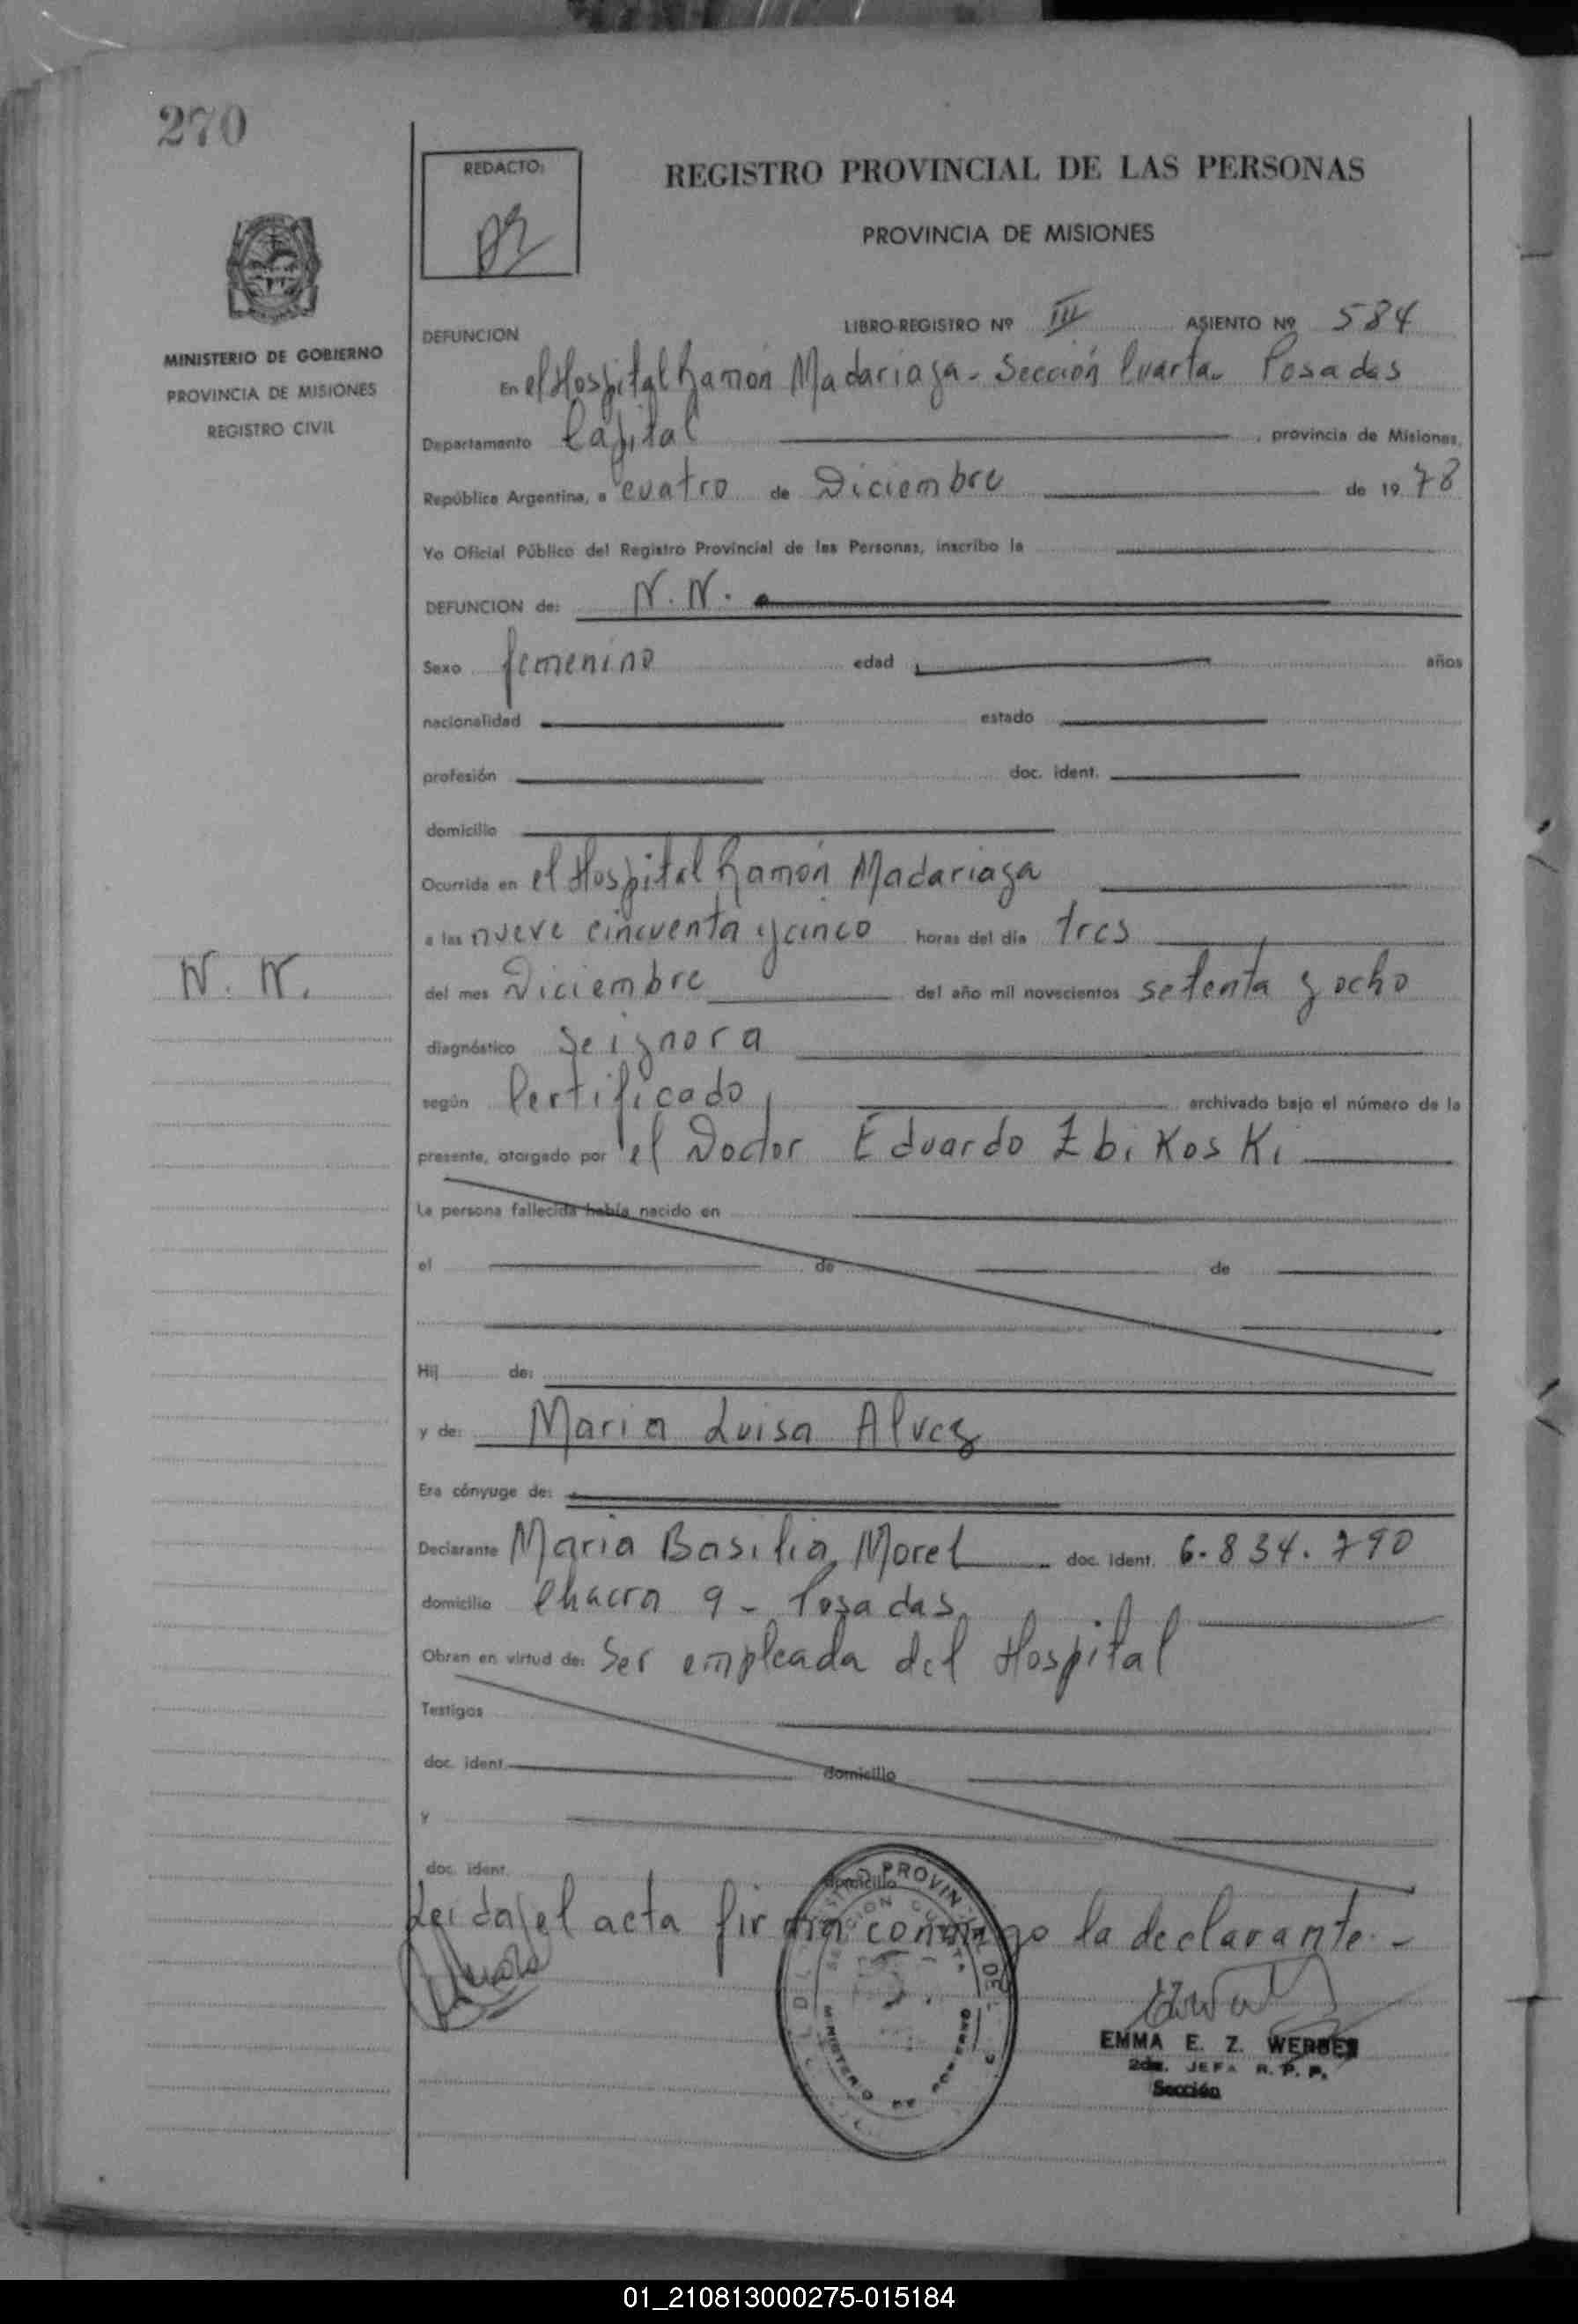 270
REDACTO:
REGISTRO PROVINCIAL DE LAS PERSONAS
PROVINCIA DE MISIONES
MINISTERIO DE GOBIERNO
PROVINCIA DE MISIONES
REGISTRO CIVIL
DEFUNCION LIBRO-REGISTRO Nº III ASIENTO Nº 584
En el Hospital Ramón Madariaga - Sección Cuarta - Posadas
Departamento Capital, provincia de Misiones,
República Argentina, a cuatro de Diciembre de 1978
Yo Oficial Público del Registro Provincial de las Personas, inscribo la
DEFUNCION de: N. N.
Sexo femenino edad años
nacionalidad estado
profesión doc. ident.
domicilio
Ocurrida en el Hospital Ramón Madariaga
a las nueve cincuenta y cinco horas del día tres
N. N.
del mes Diciembre del año mil novecientos setenta y ocho
diagnóstico Se ignora
según Certificado archivado bajo el número de la
presente, otorgado por el Doctor Eduardo Zbikoski
La persona fallecida había nacido en
el de de
Hij de:
y de: Maria Luisa Alvez
Era cónyuge de:
Declarante Maria Basilia Morel doc. ident. 6.834.790
domicilio Chacra 9 - Posadas
Obran en virtud de: Ser empleada del Hospital
Testigos
doc. ident. domicilio
y
doc. ident. domicilio
Leida el acta firma conmigo la declarante. -
EMMA E. Z. WERBES
2da. JEFA R. P. P.
Sección
MINISTERIO DE GOBIERNO
01_210813000275-015184